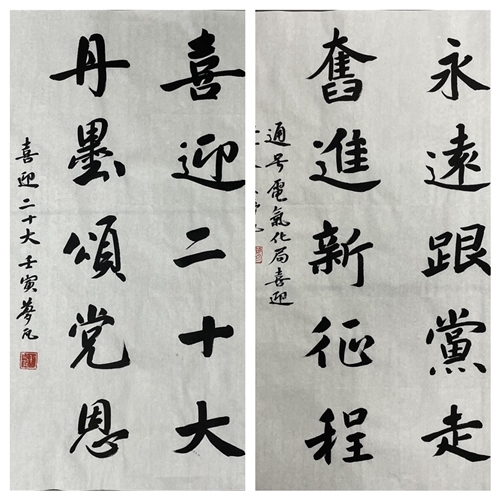 喜迎二十大
丹墨頌党恩
喜迎二十大壬寅夢凡
永遠跟黨走
奮進新征程
通号電氣化局喜迎